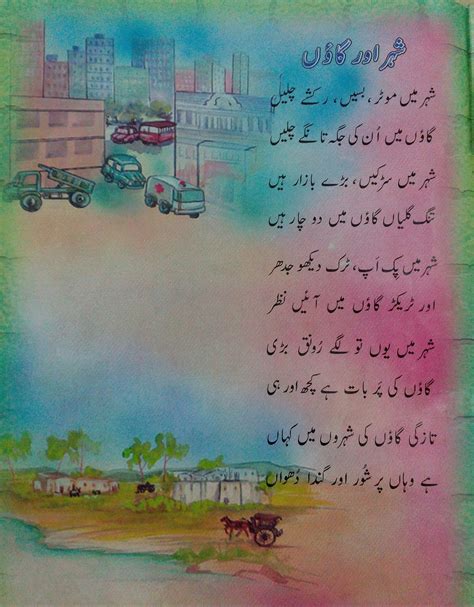 شہر اور گاؤں
شہر میں موٹر، بسیں، رکشے چلیں
گاؤں میں اُن کی جگہ تانگے چلیں
شہر میں سڑکیں، بڑے بازار ہیں
تنگ گلیاں گاؤں میں دو چار ہیں
شہر میں پک اَپ، ٹرک دیکھو جدھر
اور ٹریکٹر گاؤں میں آئیں نظر
شہر میں یوں تو لگے رُونق بڑی
گاؤں کی پَر بات ہے کچھ اور ہی
تازگی گاؤں کی شہروں میں کہاں
ہے وہاں پر شور اور گندا دُھواں